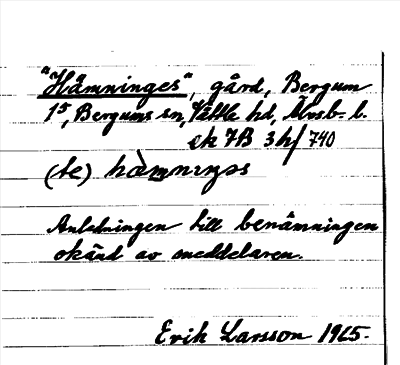 "Hämninges", gård, Bergum
1⁵, Bergums sn, Vättle hd, Älvsb. l.
ek 7B 3h/740
(te) hàmnıŋəs
Anledningen till benämningen
okänd av meddelaren.
Erik Larsson 1925.